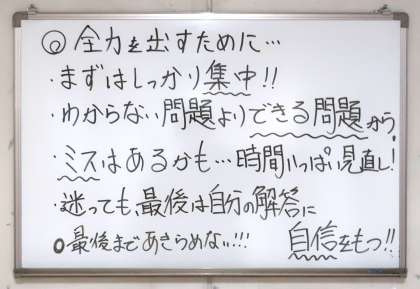 ◎ 全力を出すために…
・まずはしっかり集中!!
・わからない問題よりできる問題から。
・ミスはあるかも…時間いっぱい見直し!
・迷っても、最後は自分の解答に
自信をもつ!!
◎最後まであきらめない!!!